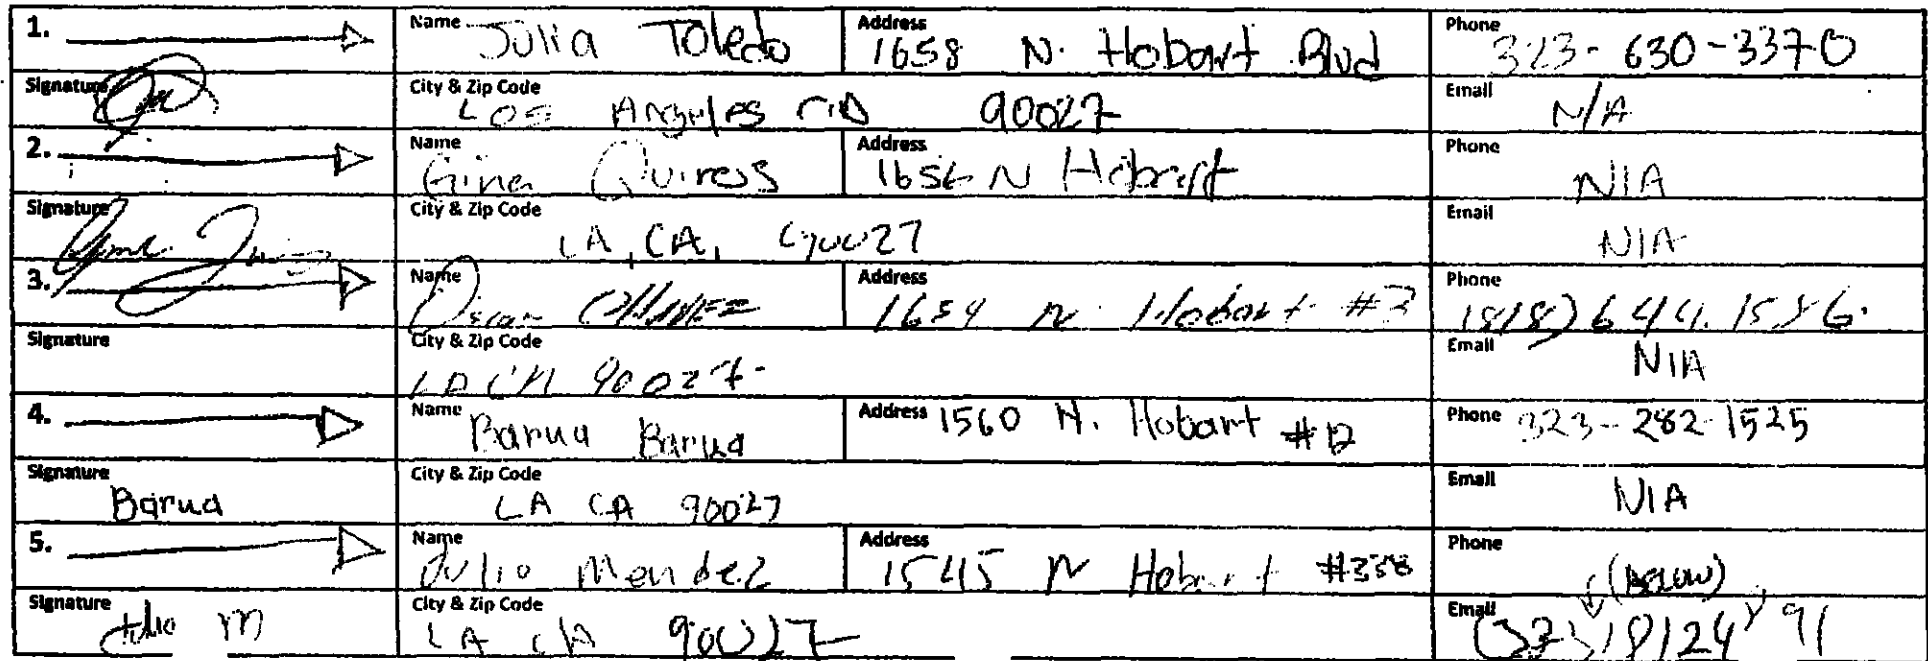 1. Name Julia Toledo Address 1658 N. Hobart Blvd Phone 323-630-3370
Signature City & Zip Code Los Angeles CA 90027 Email N/A
2. Name Gina Quiross Address 1656 N Hobart Phone N/A
Signature City & Zip Code LA, CA, 90027 Email N/A
3. Name Oscar Address 1654 N. Hobart #3 Phone
Signature City & Zip Code LA CA 90027. Email N/A
4. Name Barua Barua Address 1560 N. Hobart #12 Phone 323-282-1525
Signature Barua City & Zip Code LA CA 90027 Email N/A
5. Name Julio Mendez Address 1545 N Hobart Phone (BELOW)
Signature Julio M City & Zip Code LA CA 90027 Email